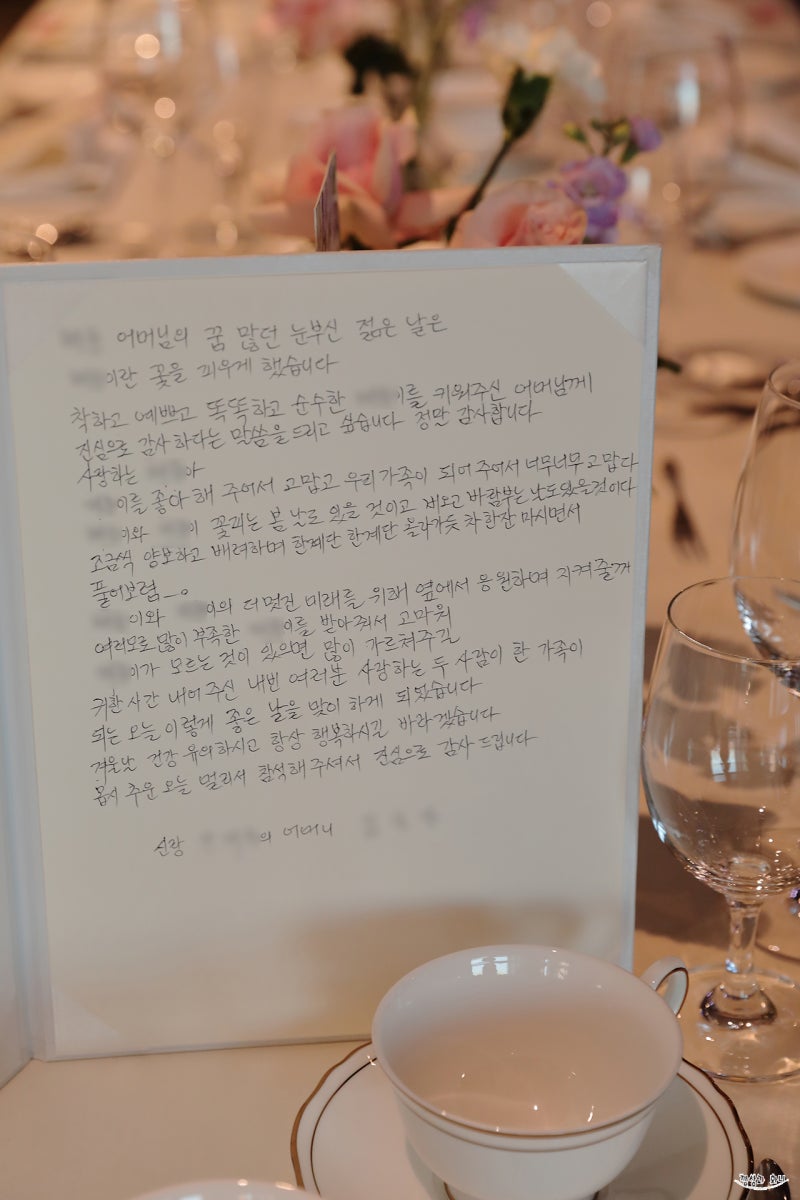 어머님의 꿈 많던 눈부신 젊은 날은
이란 꽃을 피우게 했습니다
착하고 예쁘고 똑똑하고 순수한 이를 키워주신 어머님께
진심으로 감사하다는 말씀을 드리고 싶습니다 정말 감사합니다
사랑하는 아
이를 좋아해 주어서 고맙고 우리가족이 되어 주어서 너무너무고맙다
이와 이 꽃피는 봄날도 있을 것이고 비오고 바람부는 날도있을것이다
조금씩 양보하고 배려하며 한계단 한계단 올라가듯 차한잔 마시면서
풀어보렴_。
이와 이의 더 멋진 미래를 위해 옆에서 응원하며 지켜줄게
여러모로 많이 부족한 이를 받아줘서 고마워
이가 모르는 것이 있으면 많이 가르쳐주길
귀한시간 내어주신 내빈 여러분 사랑하는 두 사람이 한 가족이
되는 오늘 이렇게 좋은 날을 맞이하게 되었습니다
겨울날 건강 유의하시고 항상 행복하시길 바라겠습니다
몹시 추운 오늘 멀리서 참석해주셔서 진심으로 감사 드립니다
신랑 의 어머니